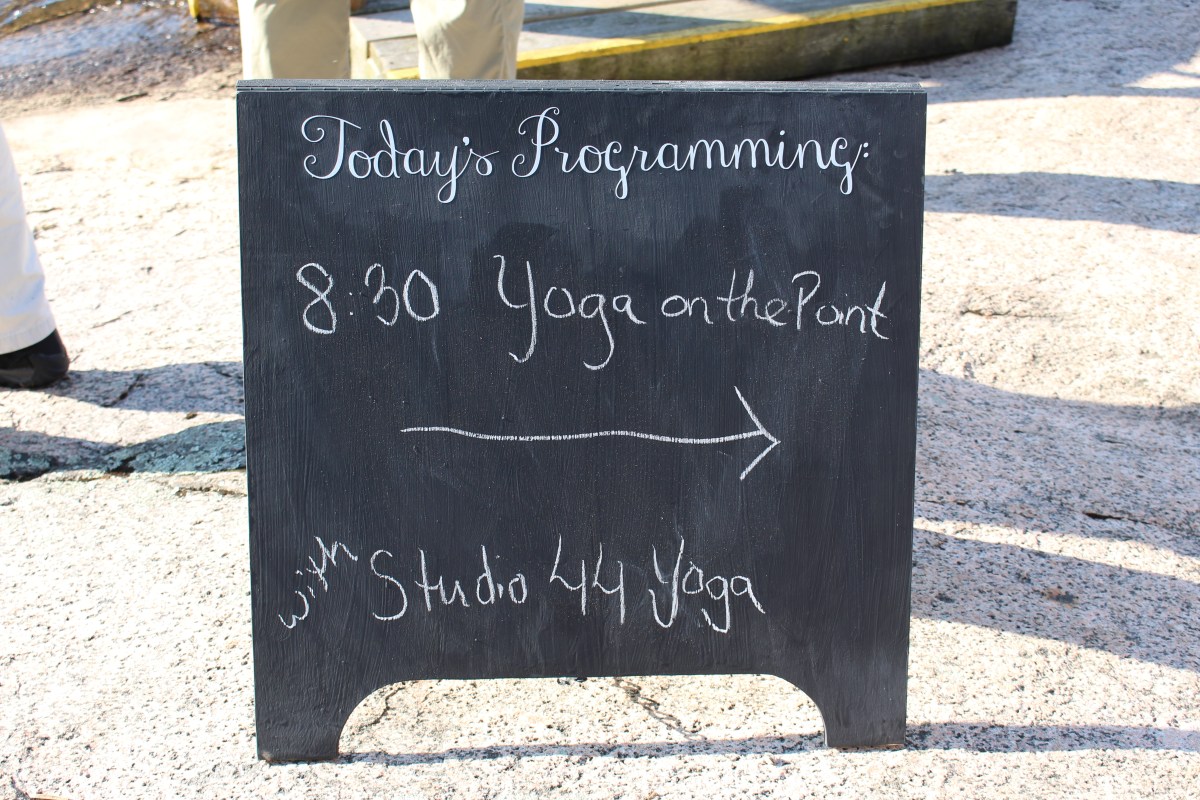 Today's Programming:
8:30 Yoga on the Point
with Studio 44 Yoga